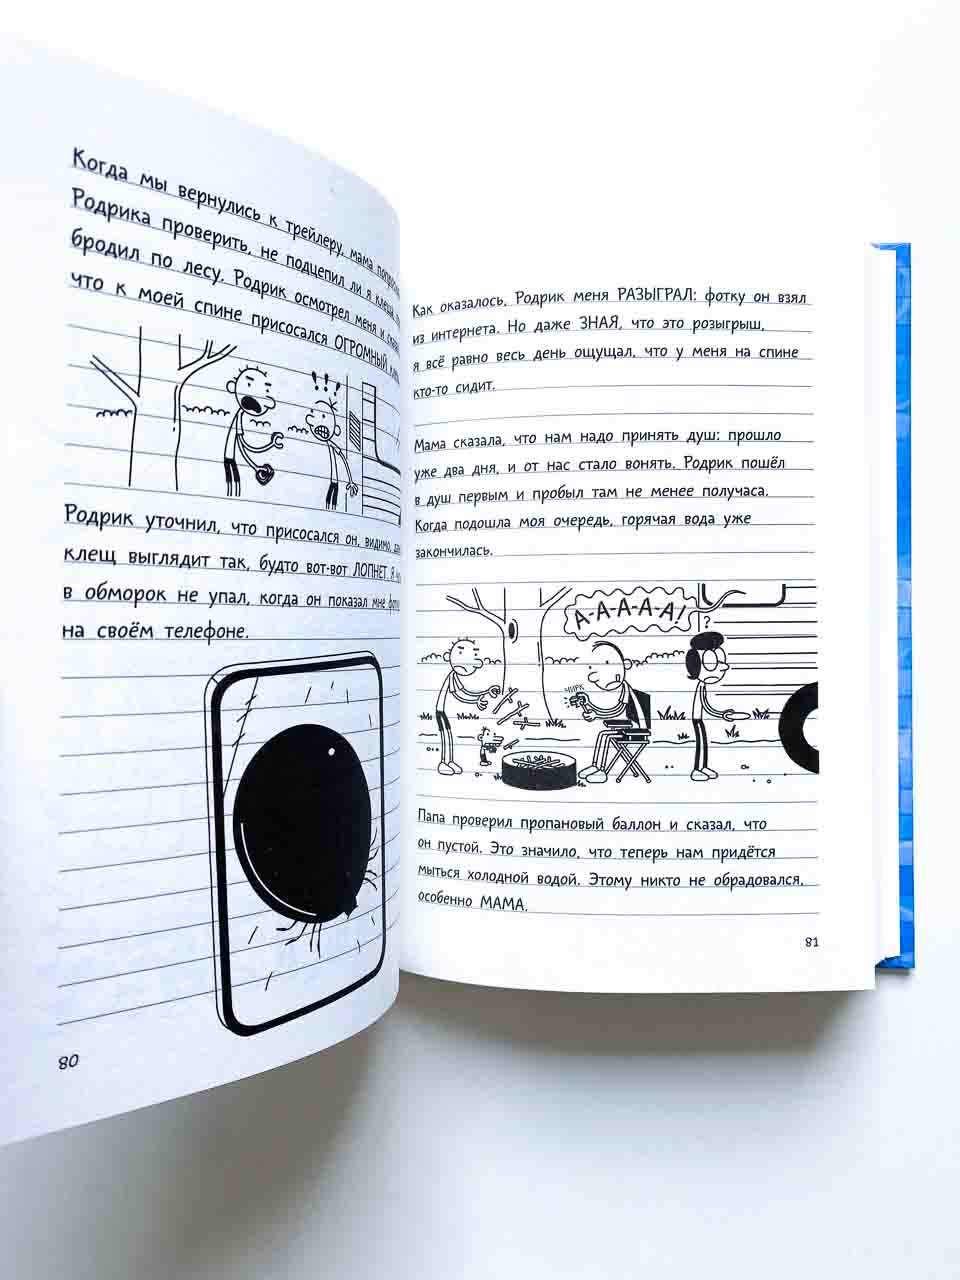 Когда мы вернулись к трейлеру, мама
Родрика проверить, не подцепил ли я клеща,
бродил по лесу. Родрик осмотрел меня и
что к моей спине присосался ОГРОМНЫЙ
!!!
Родрик уточнил, что присосался он, видимо,
клещ выглядит так, будто вот-вот ЛОПНЕТ. Я
в обморок не упал, когда он показал мне
на своём телефоне.
80
Как оказалось, Родрик меня РАЗЫГРАЛ: фотку он взял
из интернета. Но даже ЗНАЯ, что это розыгрыш,
я всё равно весь день ощущал, что у меня на спине
кто-то сидит.
Мама сказала, что нам надо принять душ: прошло
уже два дня, и от нас стало вонять. Родрик пошёл
в душ первым и пробыл там не менее получаса.
Когда подошла моя очередь, горячая вода уже
закончилась.
А-А-А-А-А!
?
ЧИРК
Папа проверил пропановый баллон и сказал, что
он пустой. Это значило, что теперь нам придётся
мыться холодной водой. Этому никто не обрадовался,
особенно МАМА.
81